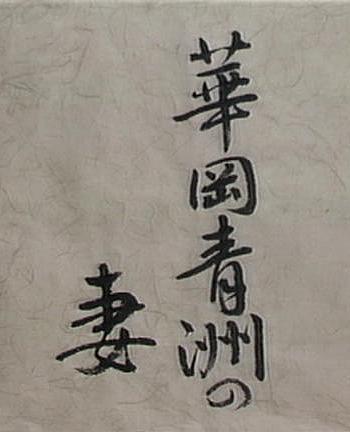 華岡青洲の
妻